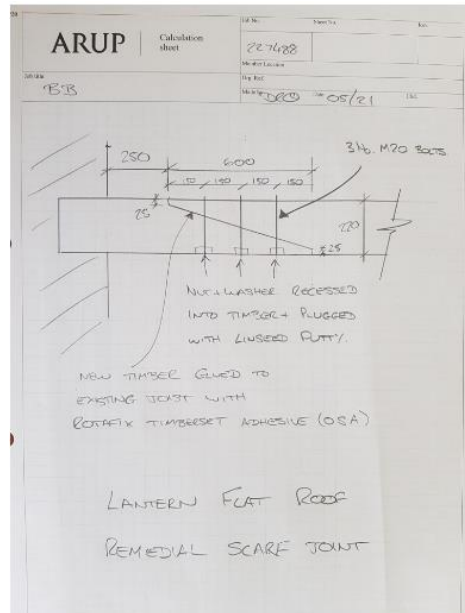 ARUP
Calculation
sheet
Job No.
Sheet No.
Rev.
227488
Member/Location
Job title
BB
Drg. Ref.
Made by
DRO
Date
05/21
Chd.
250
600
3 No. M20 BOLTS.
150
150
150
150
25
220
25
NUT + WASHER RECESSED
INTO TIMBER + PLUGGED
WITH LINSEED PUTTY.
NEW TIMBER GLUED TO
EXISTING JOIST WITH
ROTAFIX TIMBERSET ADHESIVE (OSA)
LANTERN FLAT ROOF
REMEDIAL SCARF JOINT